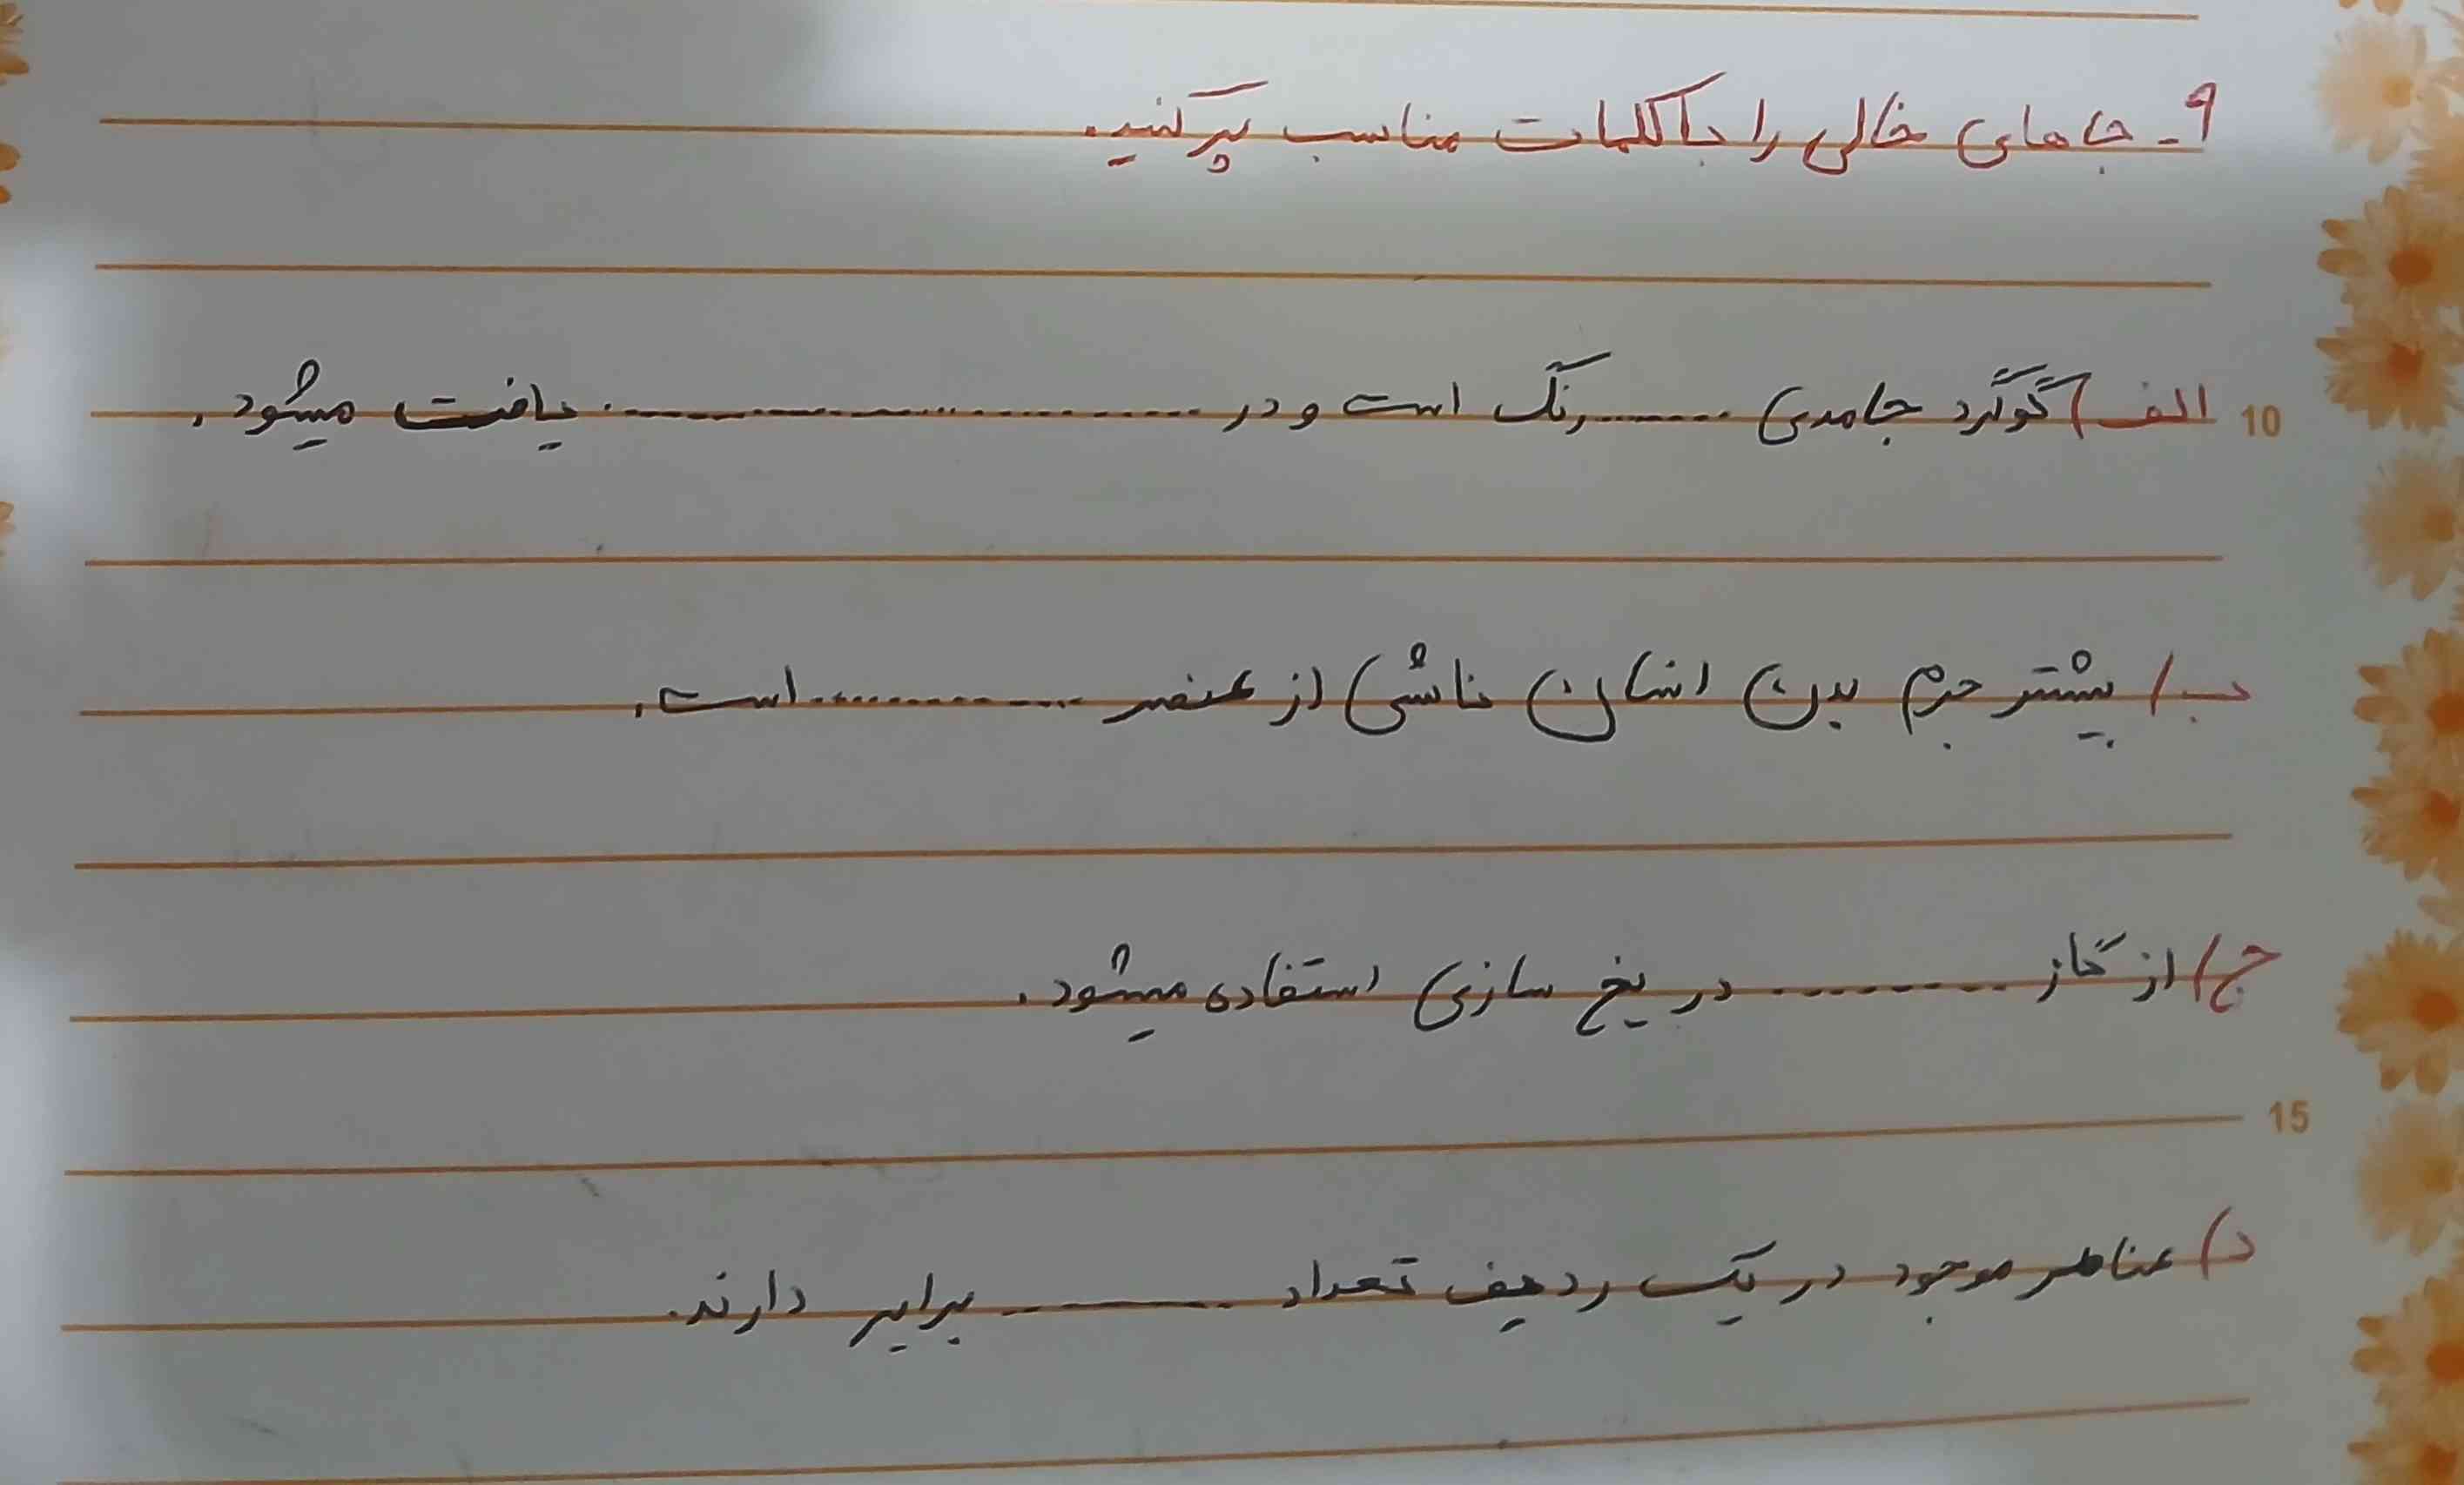 ۹- جاهای خالی را با کلمات مناسب پر کنید.
الف) گوگرد جامدی ........ رنگ است و در ........................ یافت میشود. 10
ب) بیشتر جرم بدن انسان ناشی از عنصر .............. است.
ج) از گاز ............ در یخ سازی استفاده میشود.
15
د) عناصر موجود در یک ردیف تعداد ............ برابر دارند.